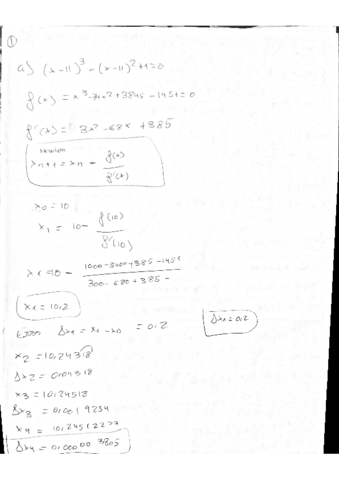 ①
a) (x-11)³ - (x-11)² + 1 = 0
f(x) = x³ - 34x² + 384x - 1451 = 0
f'(x) = 3x² - 68x + 385
xn+1 = xn - f(x) / f'(x)
x0 = 10
x1 = 10 - f(10) / f'(10)
x1 = 10 - 1000 - 3400 + 385 - 1451 / 300 - 680 + 385 -
x1 = 10,2
Error Δx1 = x1 - x0 = 0,2
Δx1 = 0,2
x2 = 10,24318
Δx2 = 0,04318
x3 = 10,24518
Δx3 = 0,0019234
x4 = 10,24512233
Δx4 = 0,00000 3805